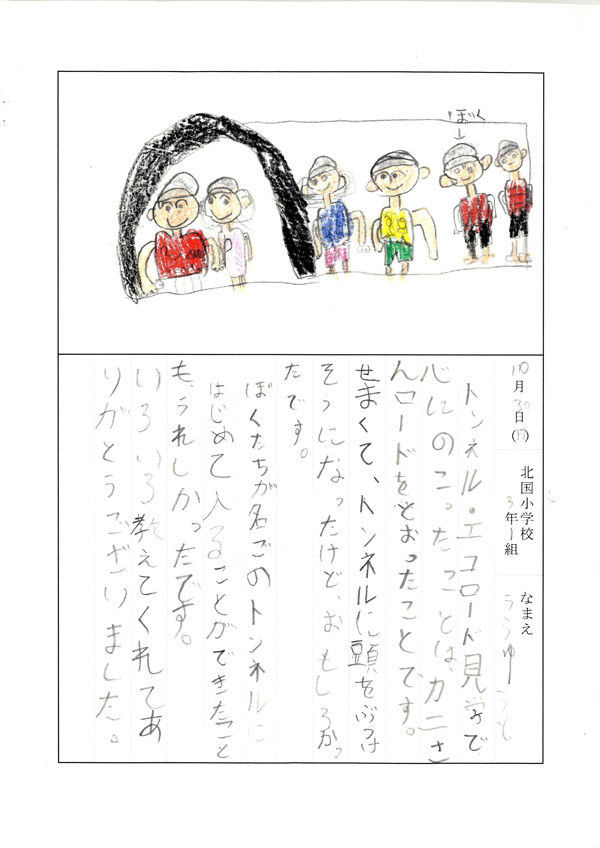 ぼく
10月30日(月)
北国小学校
3年1組
なまえ
トンネル・エコロード見学で
心にのこったことは、カニさ
んロードをとおったことです。
せまくて、トンネルに頭をぶつけ
そうになったけど、おもしろかっ
たです。
ぼくたちが名ごのトンネルに
はじめて入ることができたこと
も、うれしかったです。
いろいろ教えてくれてあ
りがとうございました。